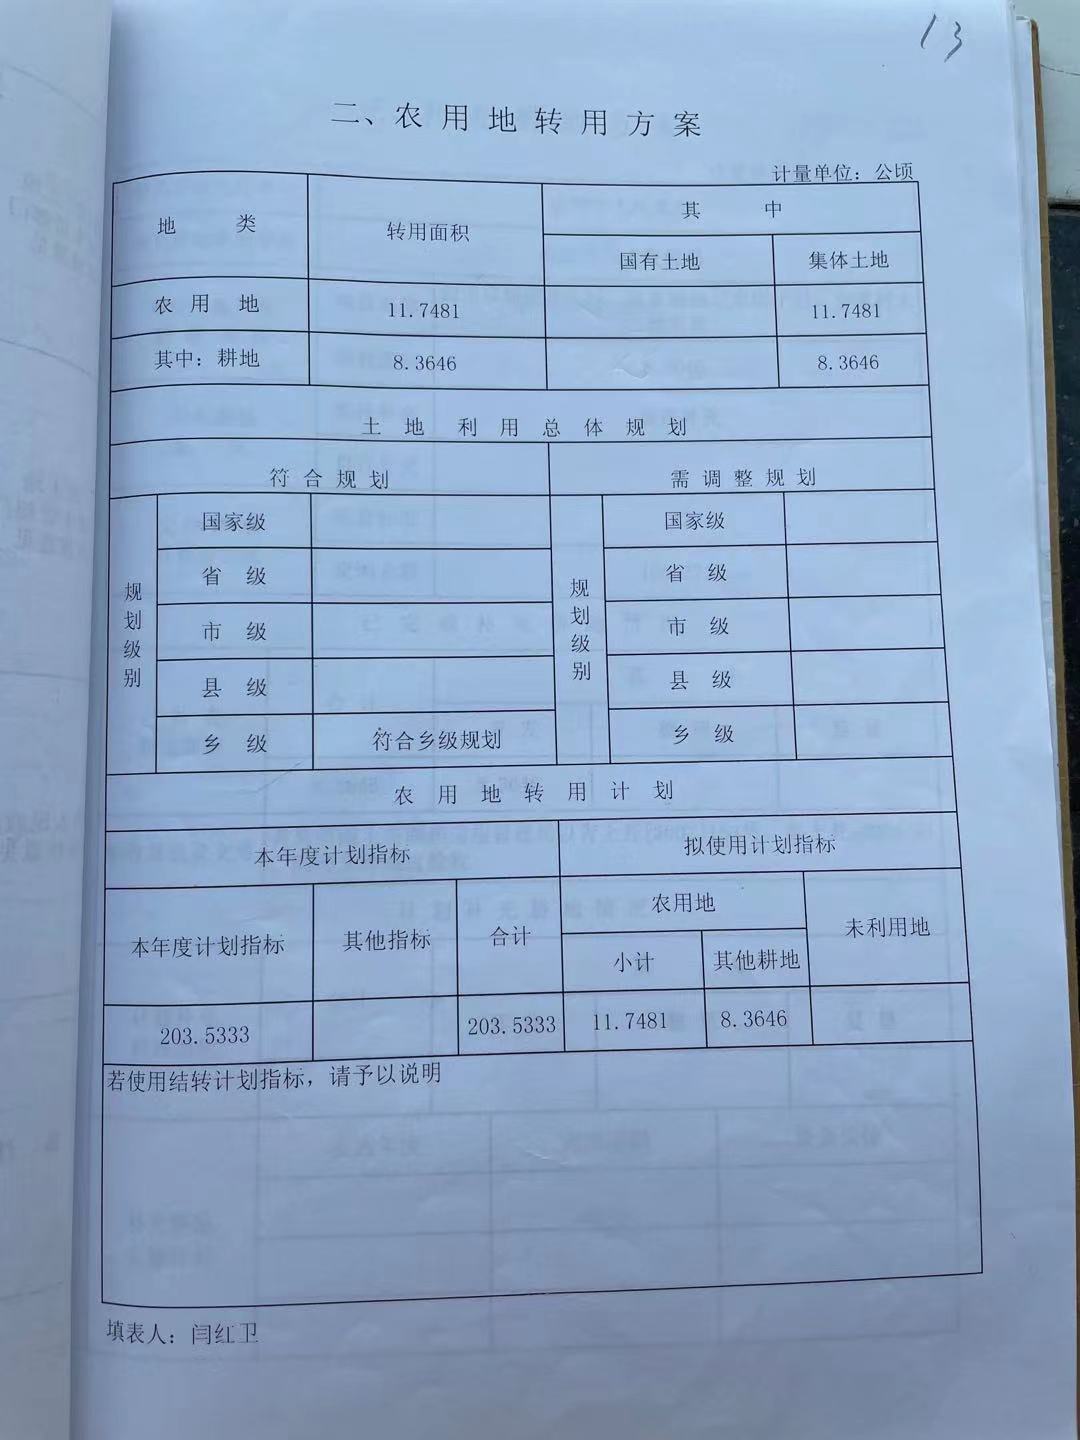 13
二、农用地转用方案
计量单位：公顷
地 类 转用面积 其 中
国有土地 集体土地
农 用 地 11.7481 11.7481
其中：耕地 8.3646 8.3646
土 地 利 用 总 体 规 划
符 合 规 划 需 调 整 规 划
规划级别 国家级 规划级别 国家级
省 级 省 级
市 级 市 级
县 级 县 级
乡 级 符合乡级规划 乡 级
农 用 地 转 用 计 划
本年度计划指标 拟使用计划指标
本年度计划指标 其他指标 合计 农用地 未利用地
小计 其他耕地
203.5333 203.5333 11.7481 8.3646
若使用结转计划指标，请予以说明
填表人：闫红卫